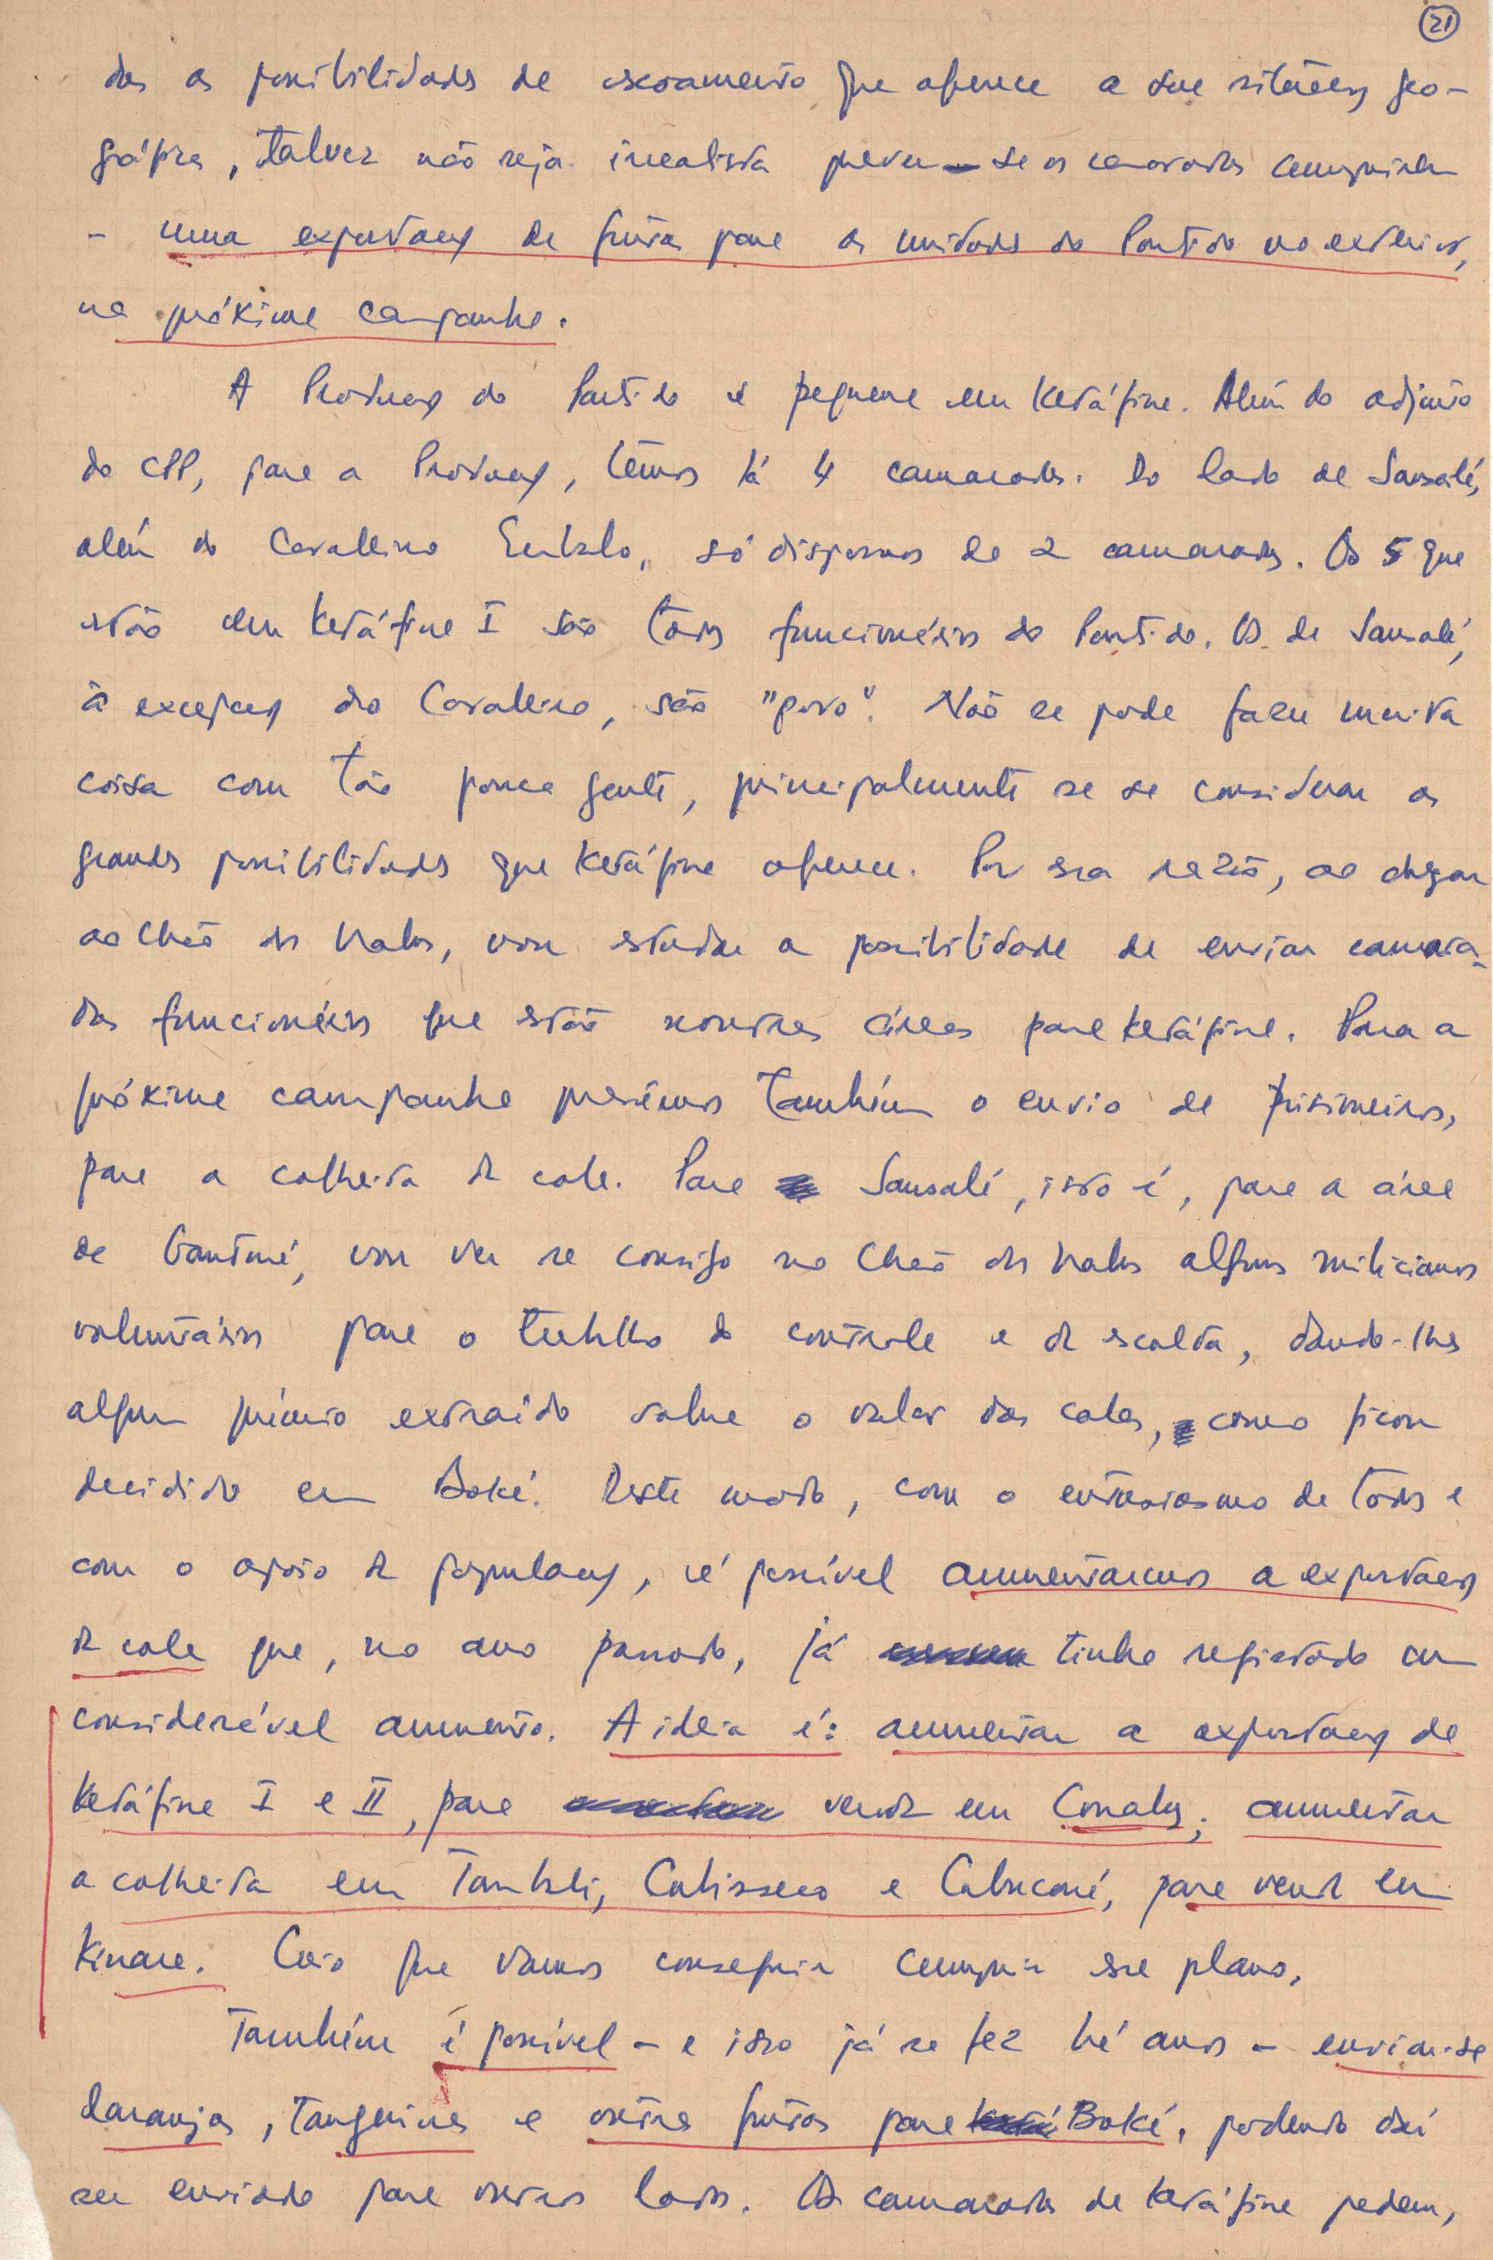 21
das as possibilidades de escoamento que oferece a sua situação geo-
gráfica, talvez não seja irrealista prever - se os camaradas cumprirem
- uma exportação de frutas para as unidades do Partido no exterior,
na próxima campanha.
A Produção do Partido é pequena em Ketáfine. Além do adjunto
do CPP, para a Produção, temos lá 4 camaradas. Do lado de Sansalé,
além do Cavaleiro Embalo, só dispomos de 2 camaradas. Os 5 que
estão em Ketáfine I são todos funcionários do Partido. Os de Sansalé,
à excepção do Cavaleiro, são "povo". Não se pode fazer muita
coisa com tão pouca gente, principalmente se se considerar as
grandes possibilidades que Ketáfine oferece. Por essa razão, ao chegar
ao Chão dos Nalus, vou estudar a possibilidade de enviar camara-
das funcionários que estão noutras áreas para Ketáfine. Para a
próxima campanha prevemos também o envio de prisioneiros,
para a colheita de cola. Para Sansalé, isto é, para a área
de, vou ver se consigo no Chão dos Nalus alguns milicianos
voluntários para o trabalho de controle e de escolta, dando-lhes
algum prémio extraido sobre o valor das colas, como ficou
decidido em Boké. Deste modo, com o entusiasmo de todos e
com o apoio da população, é possível aumentarmos a exportação
de cola que, no ano passado, já tinha registado um
considerável aumento. A ideia é: aumentar a exportação de
Ketáfine I e II, para vender em Conakry; aumentar
a colheita em Tombali, Cubisseco e Cubucaré, para vender em
Kinara. Creio que vamos conseguir cumprir esse plano.
Também é possível - e isso já se fez há anos - enviar-se
laranjas, tangerinas e outras frutas para Boké, podendo daí
ser enviado para outros lados. Os camaradas de Ketáfine pedem,